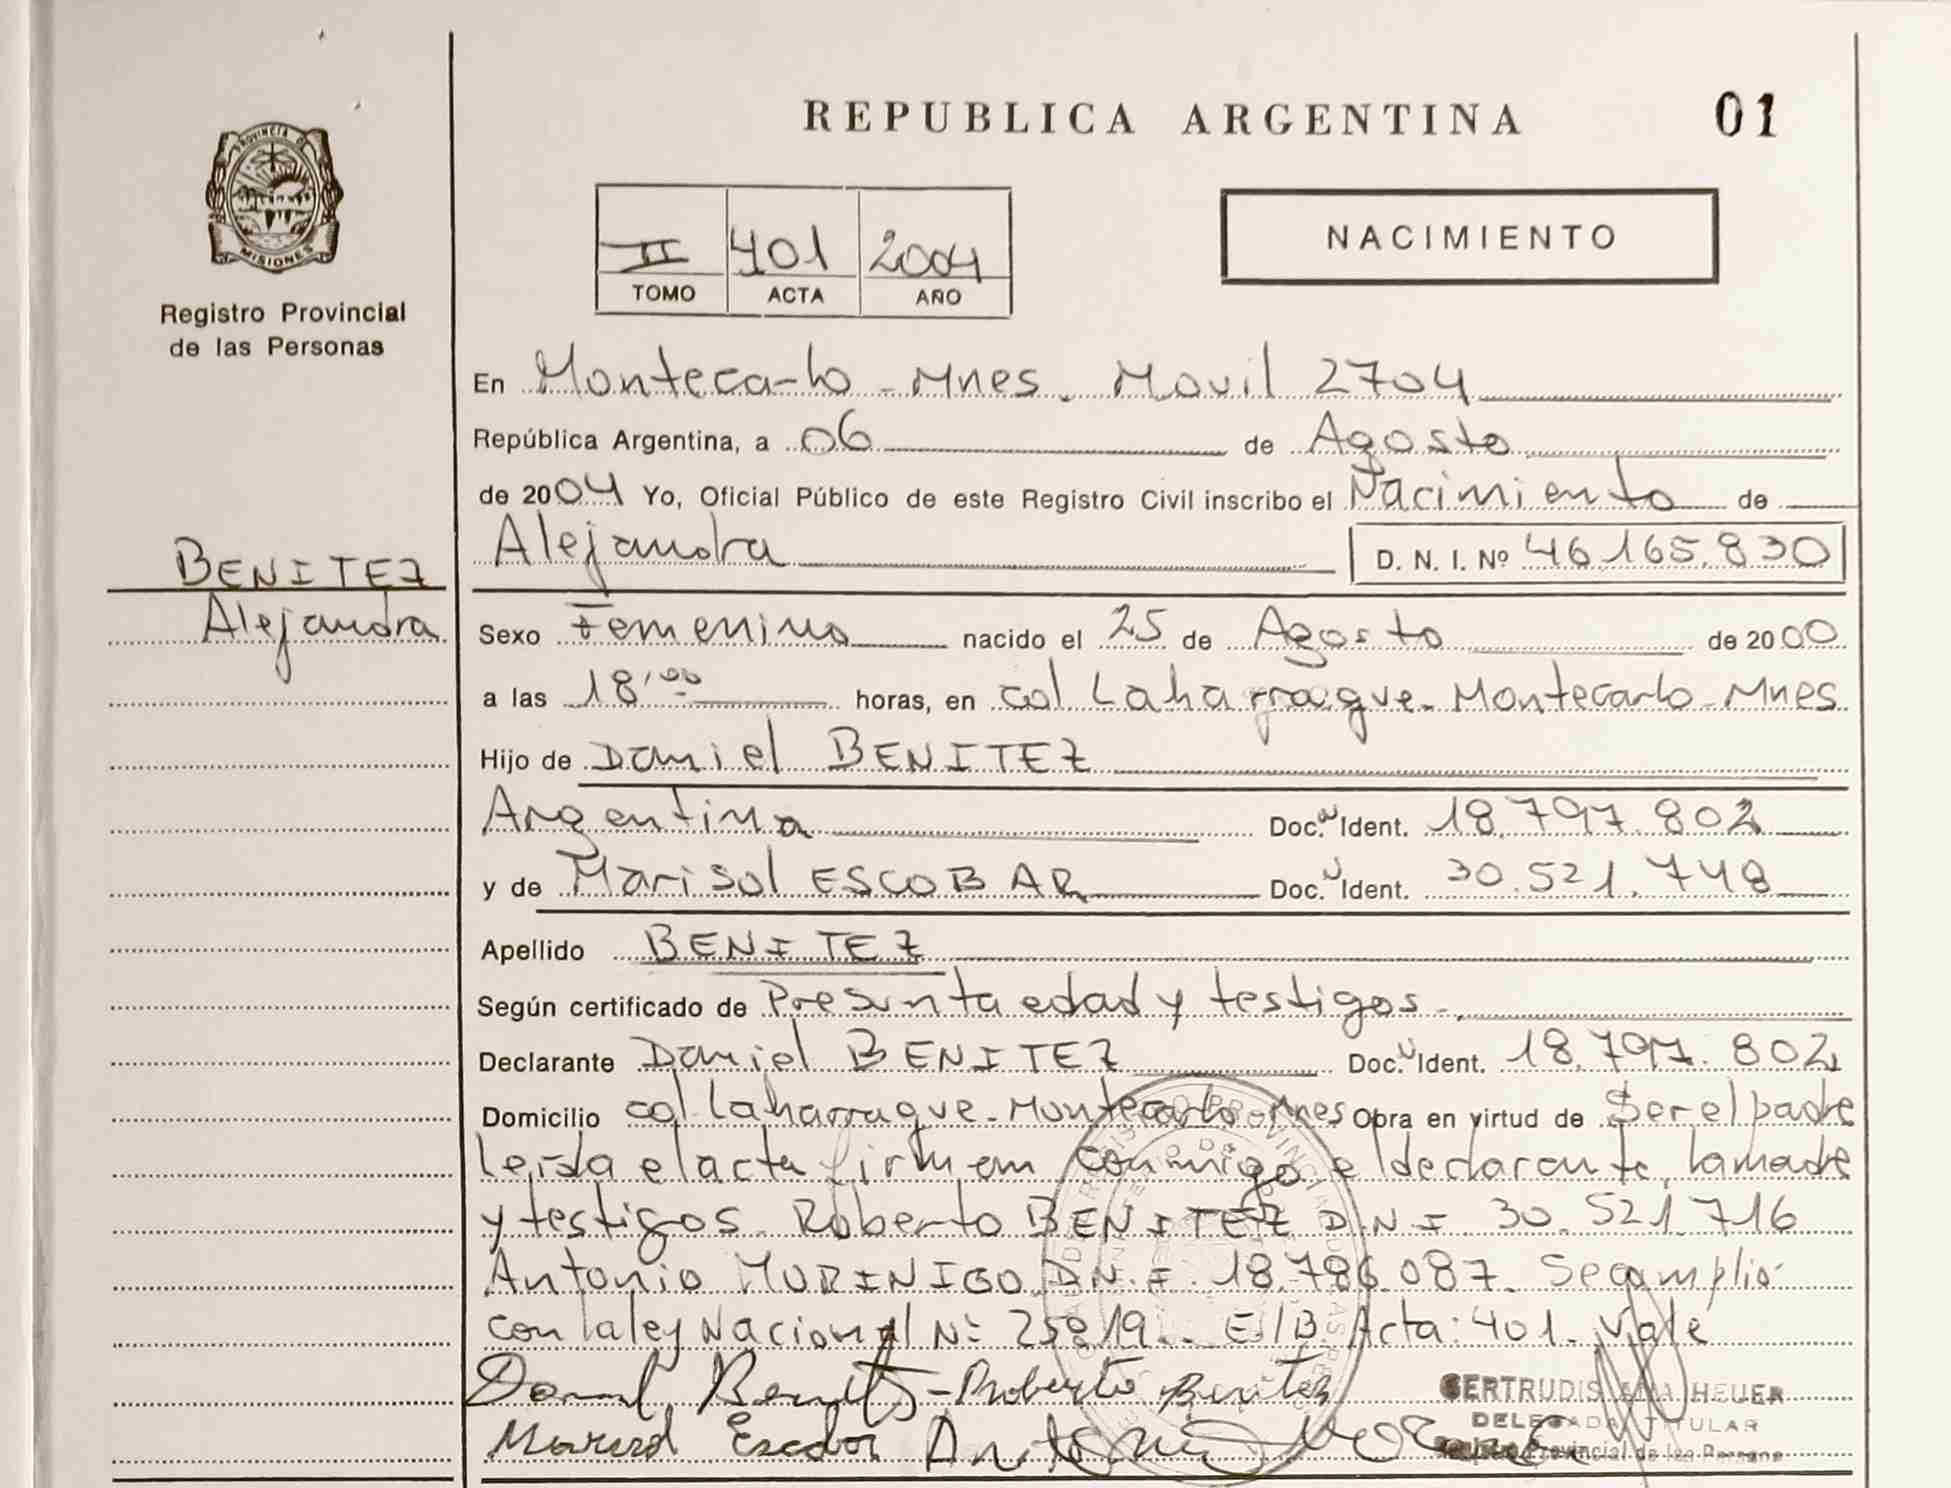 REPUBLICA ARGENTINA
01
PROVINCIA DE
MISIONES
Registro Provincial
de las Personas
II 401 2004
TOMO ACTA AÑO
NACIMIENTO
En Montecarlo - Mnes. Movil 2704
República Argentina, a 06 de Agosto
de 2004 Yo, Oficial Público de este Registro Civil inscribo el Nacimiento de
Alejandra D. N. I. Nº 46.165.830
BENITEZ
Alejandra
Sexo Femenino nacido el 25 de Agosto de 2000
a las 18,00 horas, en Col Laharrague - Montecarlo - Mnes
Hijo de Daniel BENITEZ
Argentina Doc. Ident. 18.797.802
y de Marisol ESCOBAR Doc. Ident. 30.521.748
Apellido BENITEZ
Según certificado de Presunta edad y testigos -.
Declarante Daniel BENITEZ Doc. Ident. 18.797.802
Domicilio Col Laharrague - Montecarlo - Mnes Obra en virtud de Ser el padre
leida el acta firman conmigo el declarante, la madre
y testigos. Roberto BENITEZ D.N.I 30.521.716
Antonio MORINIGO D.N.I. 18.786.087. Se cumplio
con la ley Nacional Nº 25819.. E/B Acta: 401. Vale
Daniel Benitez - Roberto Benitez
Marisol Escobar Antonio
GERTRUDIS HEUER
DELEGADA TITULAR
Registro Provincial de las Personas